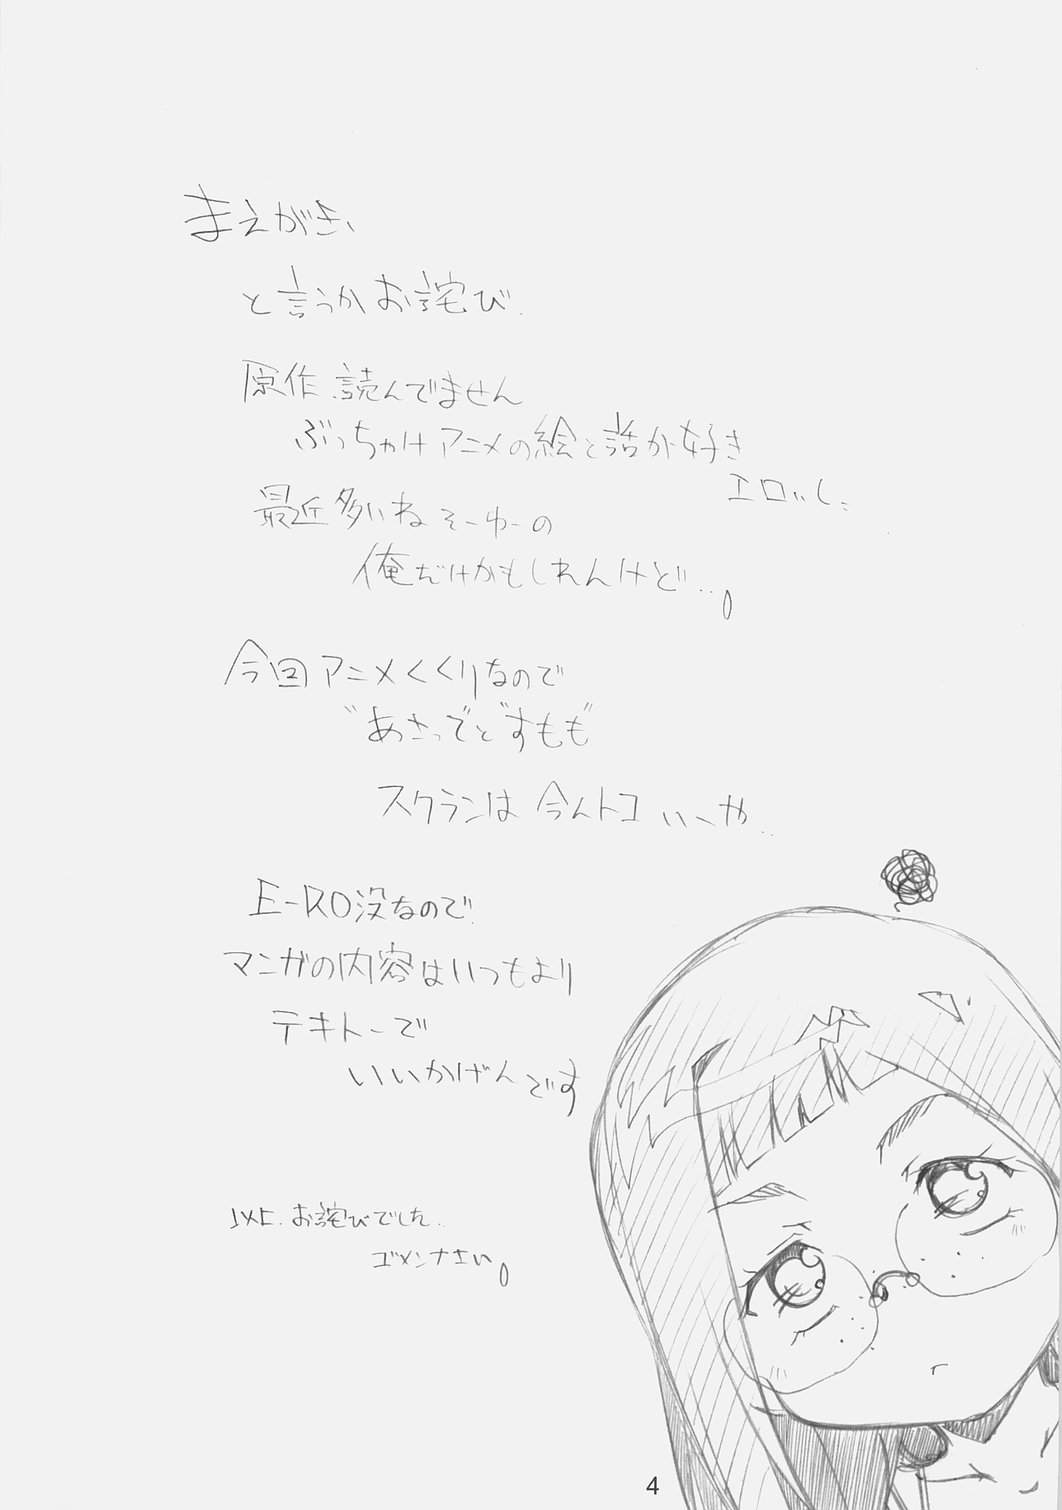 まえがき、
と言うかお詫び.
原作、読んでません
ぶっちゃけアニメの絵と話が好き
エロいし、
最近多いねそーゆーの
俺だけかもしれんけど…。
今回アニメくくりなので
"あさっでと"すもも"
スクランは今んトコいーや..
E-RO没なので.
マンガの内容はいつもより
テキトーで
いいかげんです
以上.お詫びでした..
ゴメンナさい。
4